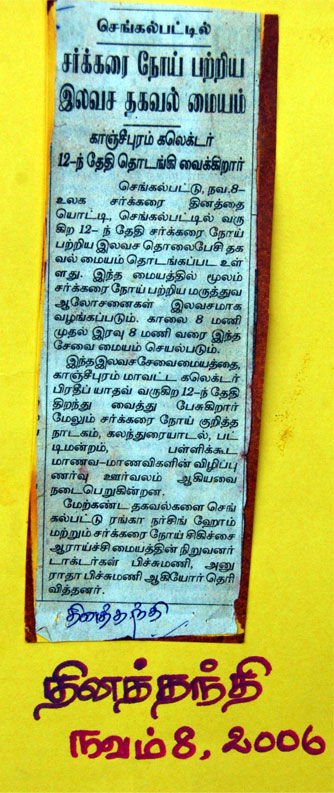 செங்கல்பட்டில்
சர்க்கரை நோய் பற்றிய
இலவச தகவல் மையம்
காஞ்சீபுரம் கலெக்டர்
12-ந் தேதி தொடங்கி வைக்கிறார்
செங்கல்பட்டு, நவ.8–
உலக சர்க்கரை தினத்தை
யொட்டி, செங்கல்பட்டில் வரு
கிற 12– ந் தேதி சர்க்கரை நோய்
பற்றிய இலவச தொலைபேசி தக
வல் மையம் தொடங்கப்பட உள்
ளது. இந்த மையத்தில் மூலம்
சர்க்கரை நோய் பற்றிய மருத்துவ
ஆலோசனைகள் இலவசமாக
வழங்கப்படும். காலை 8 மணி
முதல் இரவு 8 மணி வரை இந்த
சேவை மையம் செயல்படும்.
இந்தஇலவசசேவைமையத்தை,
காஞ்சீபுரம் மாவட்ட கலெக்டர்
பிரதீப் யாதவ் வருகிற 12–ந் தேதி
திறந்து வைத்து பேசுகிறார்
மேலும் சர்க்கரை நோய் குறித்த
நாடகம், கலந்துரையாடல், பட்
டிமன்றம், பள்ளிக்கூட
மாணவ–மாணவிகளின் விழிப்பு
ணர்வு ஊர்வலம் ஆகியவை
நடைபெறுகின்றன.
மேற்கண்ட தகவல்களை செங்
கல்பட்டு ரங்கா நர்சிங் ஹோம்
மற்றும் சர்க்கரை நோய் சிகிச்சை
ஆராய்ச்சி மையத்தின் நிறுவனர்
டாக்டர்கள் பிச்சுமணி, அனு
ராதா பிச்சுமணி ஆகியோர் தெரி
வித்தனர்.
தினத்தந்தி
தினத்தந்தி
நவம் 8, 2006